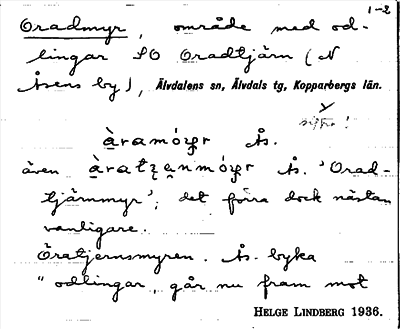 1-2
Oradmyr, område med od-
lingar SO Oradtjärn (N
Åsens by), Älvdalens sn, Älvdals tg, Kopparbergs län.
àramó Ås.
även Ås. 'Orad-
tjärnmyr'; det förra dock nästan
vanligare.
Öratjernsmyren. Ås. byka
" odlingar, går nu fram mot
HELGE LINDBERG 1936.